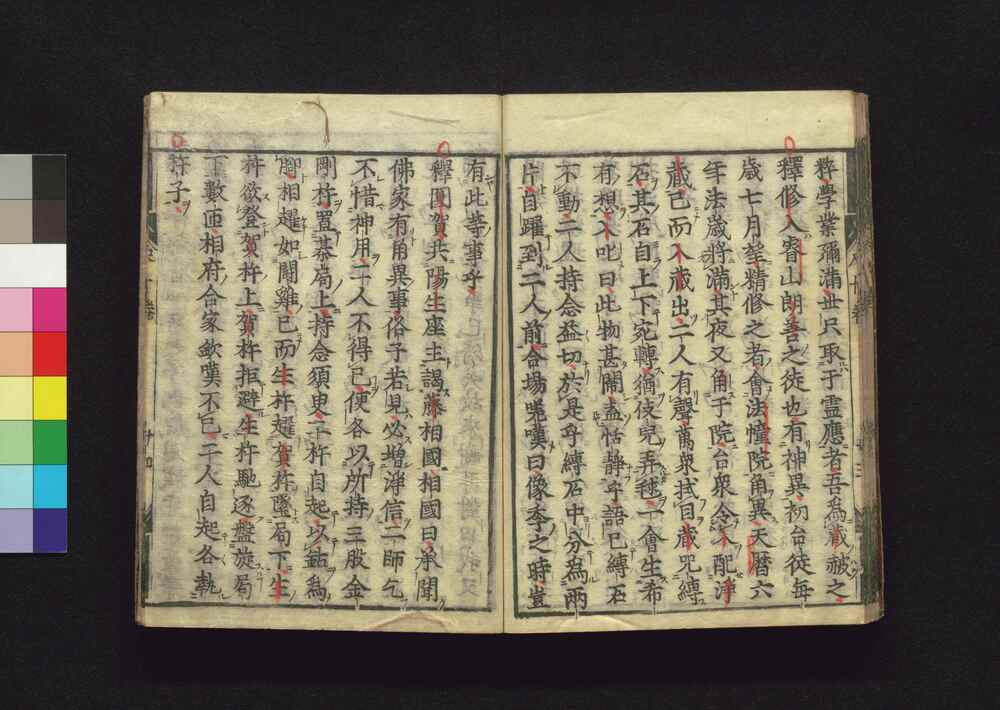 粹學業彌滿世只取于靈應者吾爲藏祓之
釋修入睿山朗善之徒也有神異初台徒每
歲七月垄精修之者會法幢院角異天曆六
年法歲將滿其夜又角于院台衆令入配淨
藏已而入藏出二人有聲萬衆拭目藏咒縛
石其石自上下宛轉猶使兒弄毬一會生希
有想入叱曰此物甚鬧盍恬靜乎語已縛石
不動二人持念益切於是乎縛石中分爲兩
片自躍到二人前合場嗟嘆曰像季之時豈
有此等事乎
釋圓賀共陽生座主謁藤相國相國曰承聞
佛家有角異事俗子若見必增淨信二師乞
不惜神用二人不得已便各以所持三股金
剛杵置棊局上持念須臾二杵自起以鈷爲
脚相趯如鬪雞已而生杵趯賀杵墮局下生
杵欲登賀杵上賀杵拒避生杵馳逐盤旋局
下數匝相府合家歎嘆不已二人自起各執
杵子